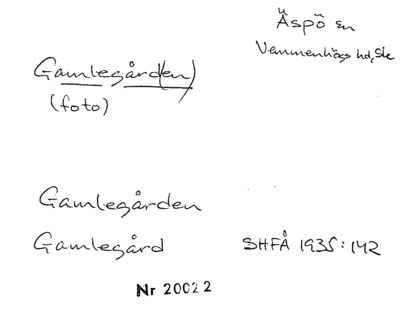 Äspö sn
Vemmenhögs hd, Sk
Gamlegård(en)
(foto)
Gamlegården
Gamlegård SHFÅ 1935:142
Nr 20022